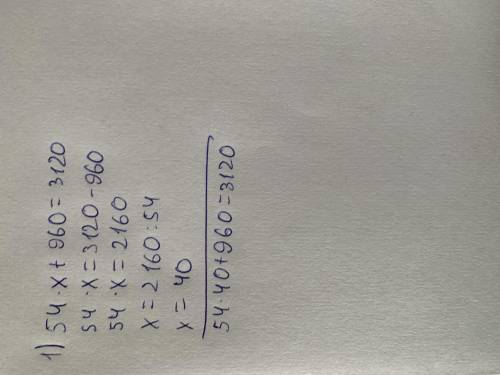 1) 54·x + 960 = 3120
54·x = 3120 - 960
54·x = 2160
x = 2160:54
x = 40
54·40+960=3120